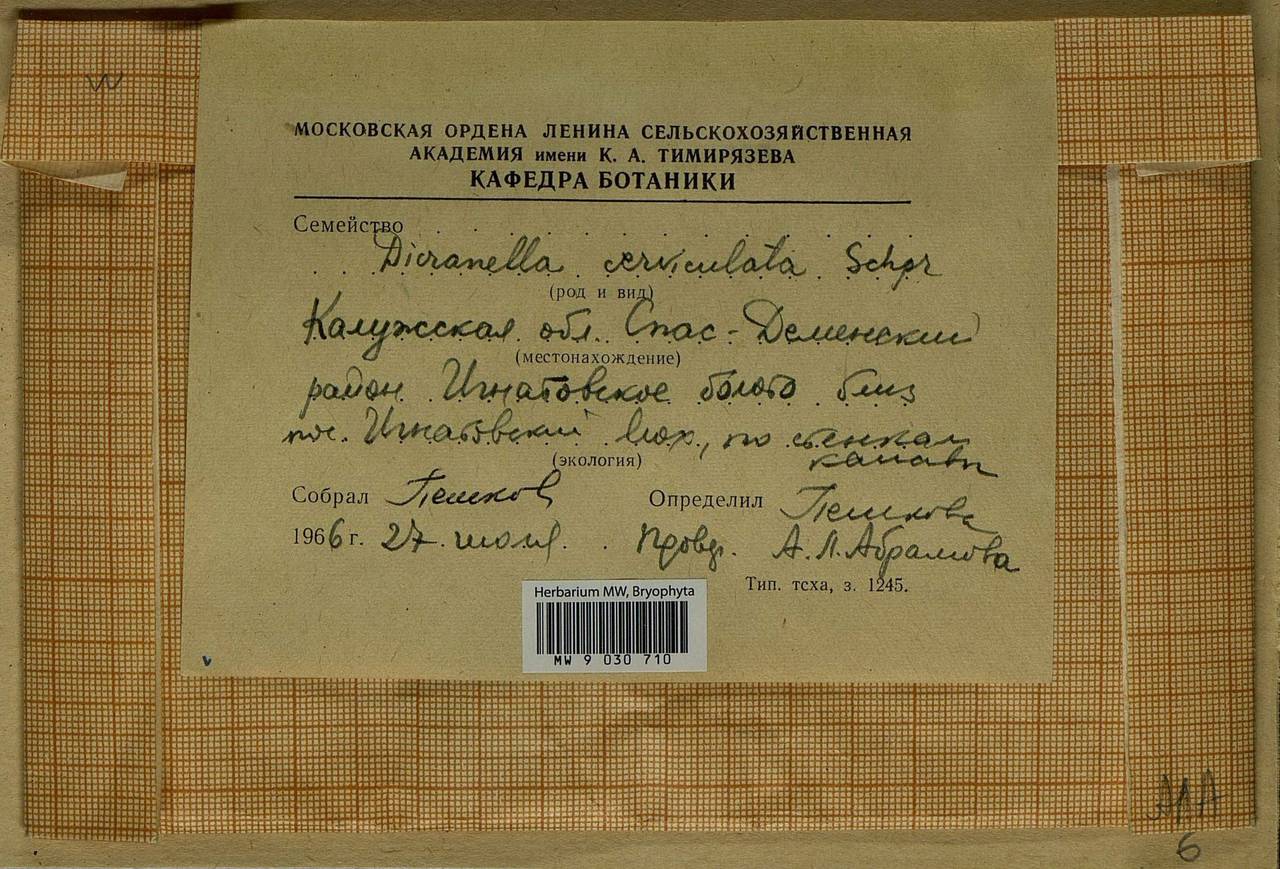 W
МОСКОВСКАЯ ОРДЕНА ЛЕНИНА СЕЛЬСКОХОЗЯЙСТВЕННАЯ
АКАДЕМИЯ имени К. А. ТИМИРЯЗЕВА
КАФЕДРА БОТАНИКИ
Семейство
Dicranella cerviculata Schpr
(род и вид)
Калужская обл. Спас-Деменский
(местонахождение)
район Игнатовское болото близ
пос. Игнатовский Мох, по стенкам
канавы
(экология)
Собрал Пешков Определил Пешкова
1966 г. 27 июля. Провер. А. Л. Абрамова
Тип. тсха, з. 1245.
Herbarium MW, Bryophyta
MW 9 030 710
v
АЛА
6